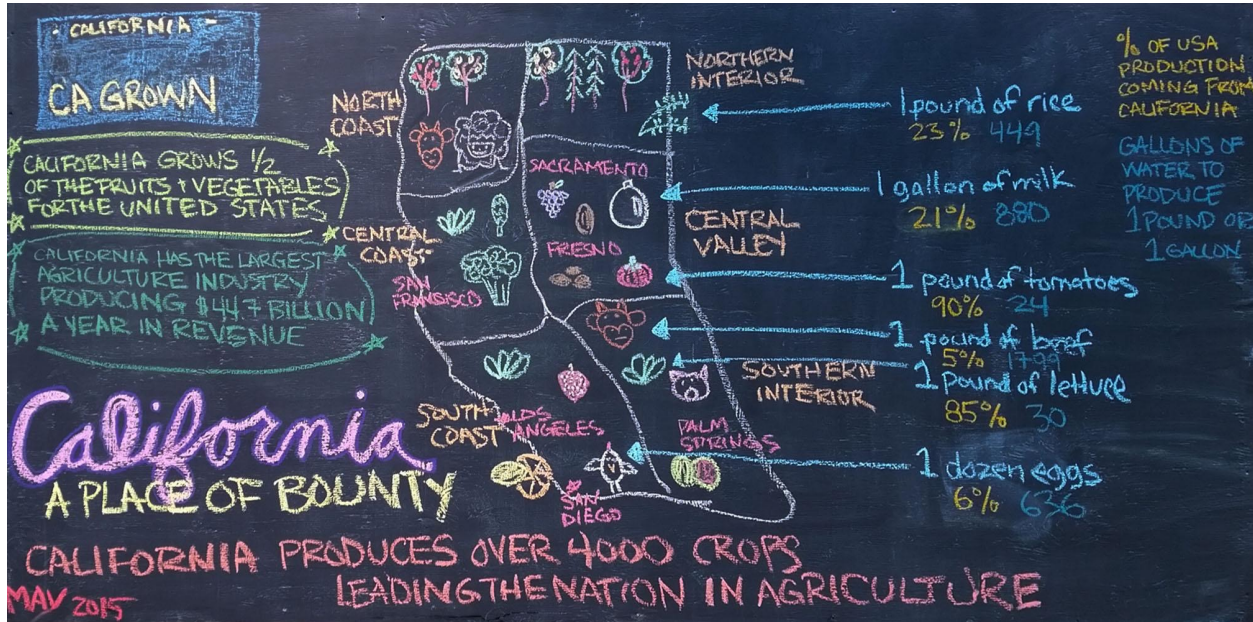 - CALIFORNIA -
CA GROWN
CALIFORNIA GROWS 1/2
OF THE FRUITS + VEGETABLES
FOR THE UNITED STATES
CALIFORNIA HAS THE LARGEST
AGRICULTURE INDUSTRY
PRODUCING $44.7 BILLION
A YEAR IN REVENUE
California
A PLACE OF BOUNTY
CALIFORNIA PRODUCES OVER 4000 CROPS
LEADING THE NATION IN AGRICULTURE
MAY 2015
NORTH
COAST
NORTHERN
INTERIOR
SACRAMENTO
CENTRAL
COAST
CENTRAL
VALLEY
FRESNO
SAN
FRANSISCO
SOUTHERN
INTERIOR
SOUTH
COAST
LOS
ANGELES
PALM
SPRINGS
SAN
DIEGO
1 pound of rice
23% 449
1 gallon of milk
21% 880
1 pound of tomatoes
90% 24
1 pound of beef
5% 1799
1 pound of lettuce
85% 30
1 dozen eggs
6% 636
% OF USA
PRODUCTION
COMING FROM
CALIFORNIA
GALLONS OF
WATER TO
PRODUCE
1 POUND OR
1 GALLON